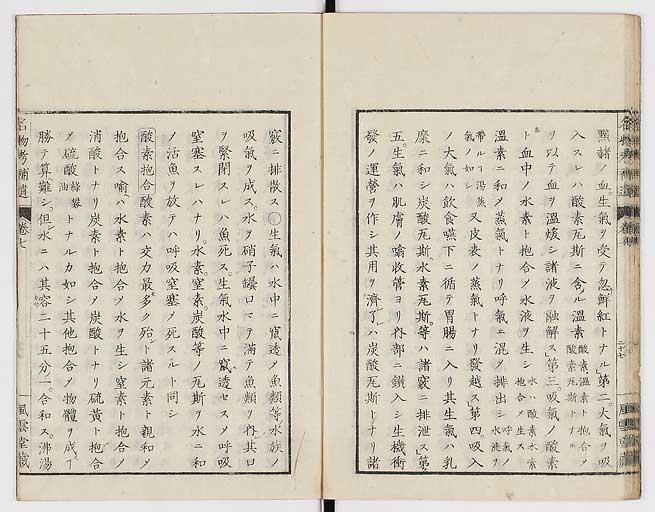 黯赭ノ血。生氣ヲ受テ忽鮮紅トナル」第二。大氣ヲ吸
入スレハ酸素瓦斯ニ含ル溫素酸素溫素ト抱合メ酸素瓦斯トナル
ヲ以テ血ヲ溫煖シ諸液ヲ融解ス」第三。吸氣ノ酸素
ト血中ノ水素ト抱合メ水液ヲ生シ水ハ酸素水素抱合メ生ス
溫素ニ和メ蒸氣トナリ呼氣ニ混メ排出シ呼氣ノ水液ヲ
帶ルヿ湯蒸氣ノ如シ又皮表ノ蒸氣トナリ發越ス」第四。吸入
ノ大氣ハ飮食嚥下ニ循テ胃腸ニ入リ其生氣ハ乳
糜ニ和シ炭酸瓦斯水素瓦斯。等ハ諸竅ニ排泄ス」第
五。生氣ハ肌膚ノ噏收管ヨリ內部ニ鑚入シ生機衝
發ノ運營ヲ作シ其用ヲ濟メハ炭酸瓦斯トナリ諸
竅ニ排散ス○生氣ハ水中ニ竄透メ魚類等水族ノ
吸氣ヲ成ス。水ヲ硝子罎口マテ滿テ魚類ヲ內其口
ヲ緊閉スレハ魚死ス。生氣水中ニ竄透セスメ呼吸
窒塞スレハナリ。水素窒素。炭酸等ノ瓦斯ヲ水ニ和
メ活魚ヲ放テハ呼吸窒塞メ死スルト同シ
酸素抱合 酸素ハ交力最多ク殆ト諸元素ト親和メ
抱合ス喻ハ水素ト抱合メ水ヲ生シ窒素ト抱合メ
消酸トナリ炭素ト抱合メ炭酸トナリ硫黃ト抱合
メ硫酸綠礬油トナルカ如シ其他抱合メ物體ヲ成ヿ
勝テ算難シ。但水ニハ其容二十五分一。合和ス。沸湯
名物考補遺
卷七
風雲堂藏